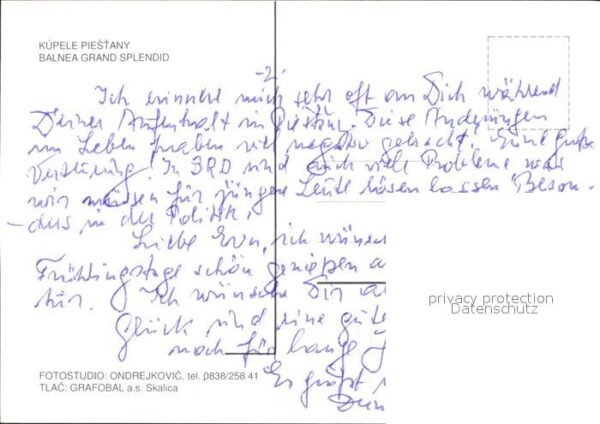 KÚPELE PIEŠŤANY
BALNEA GRAND SPLENDID
-2-
Ich erinnere mich sehr oft an Dich während
Deiner Aufenthalt in Diese Änderungen
im Leben haben viel negativ gebracht. Eine große
Verstörung! In BRD sind auch viele Probleme was
wir müssen für jüngere Leute lösen lassen Beson-
-ders in der Politik.
Liebe Eva, ich wünsch
Frühlingstage schön genießen a
tur. Ich wünsche Dir a
Glück und eine gute
noch für lange J
Es grüßt
Dein
privacy protection
Datenschutz
FOTOSTUDIO: ONDREJKOVIČ, tel. 0838/258 41
TLAČ: GRAFOBAL a.s. Skalica